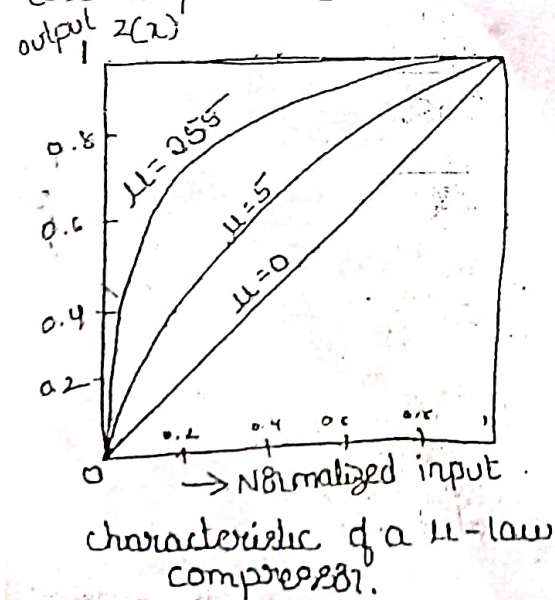 output z(x)
1
0.8
0.6
0.4
0.2
0
μ=255
μ=5
μ=0
0.2 0.4 0.6 0.8 1
→ Normalized input
characteristic of a μ-law
compressor.